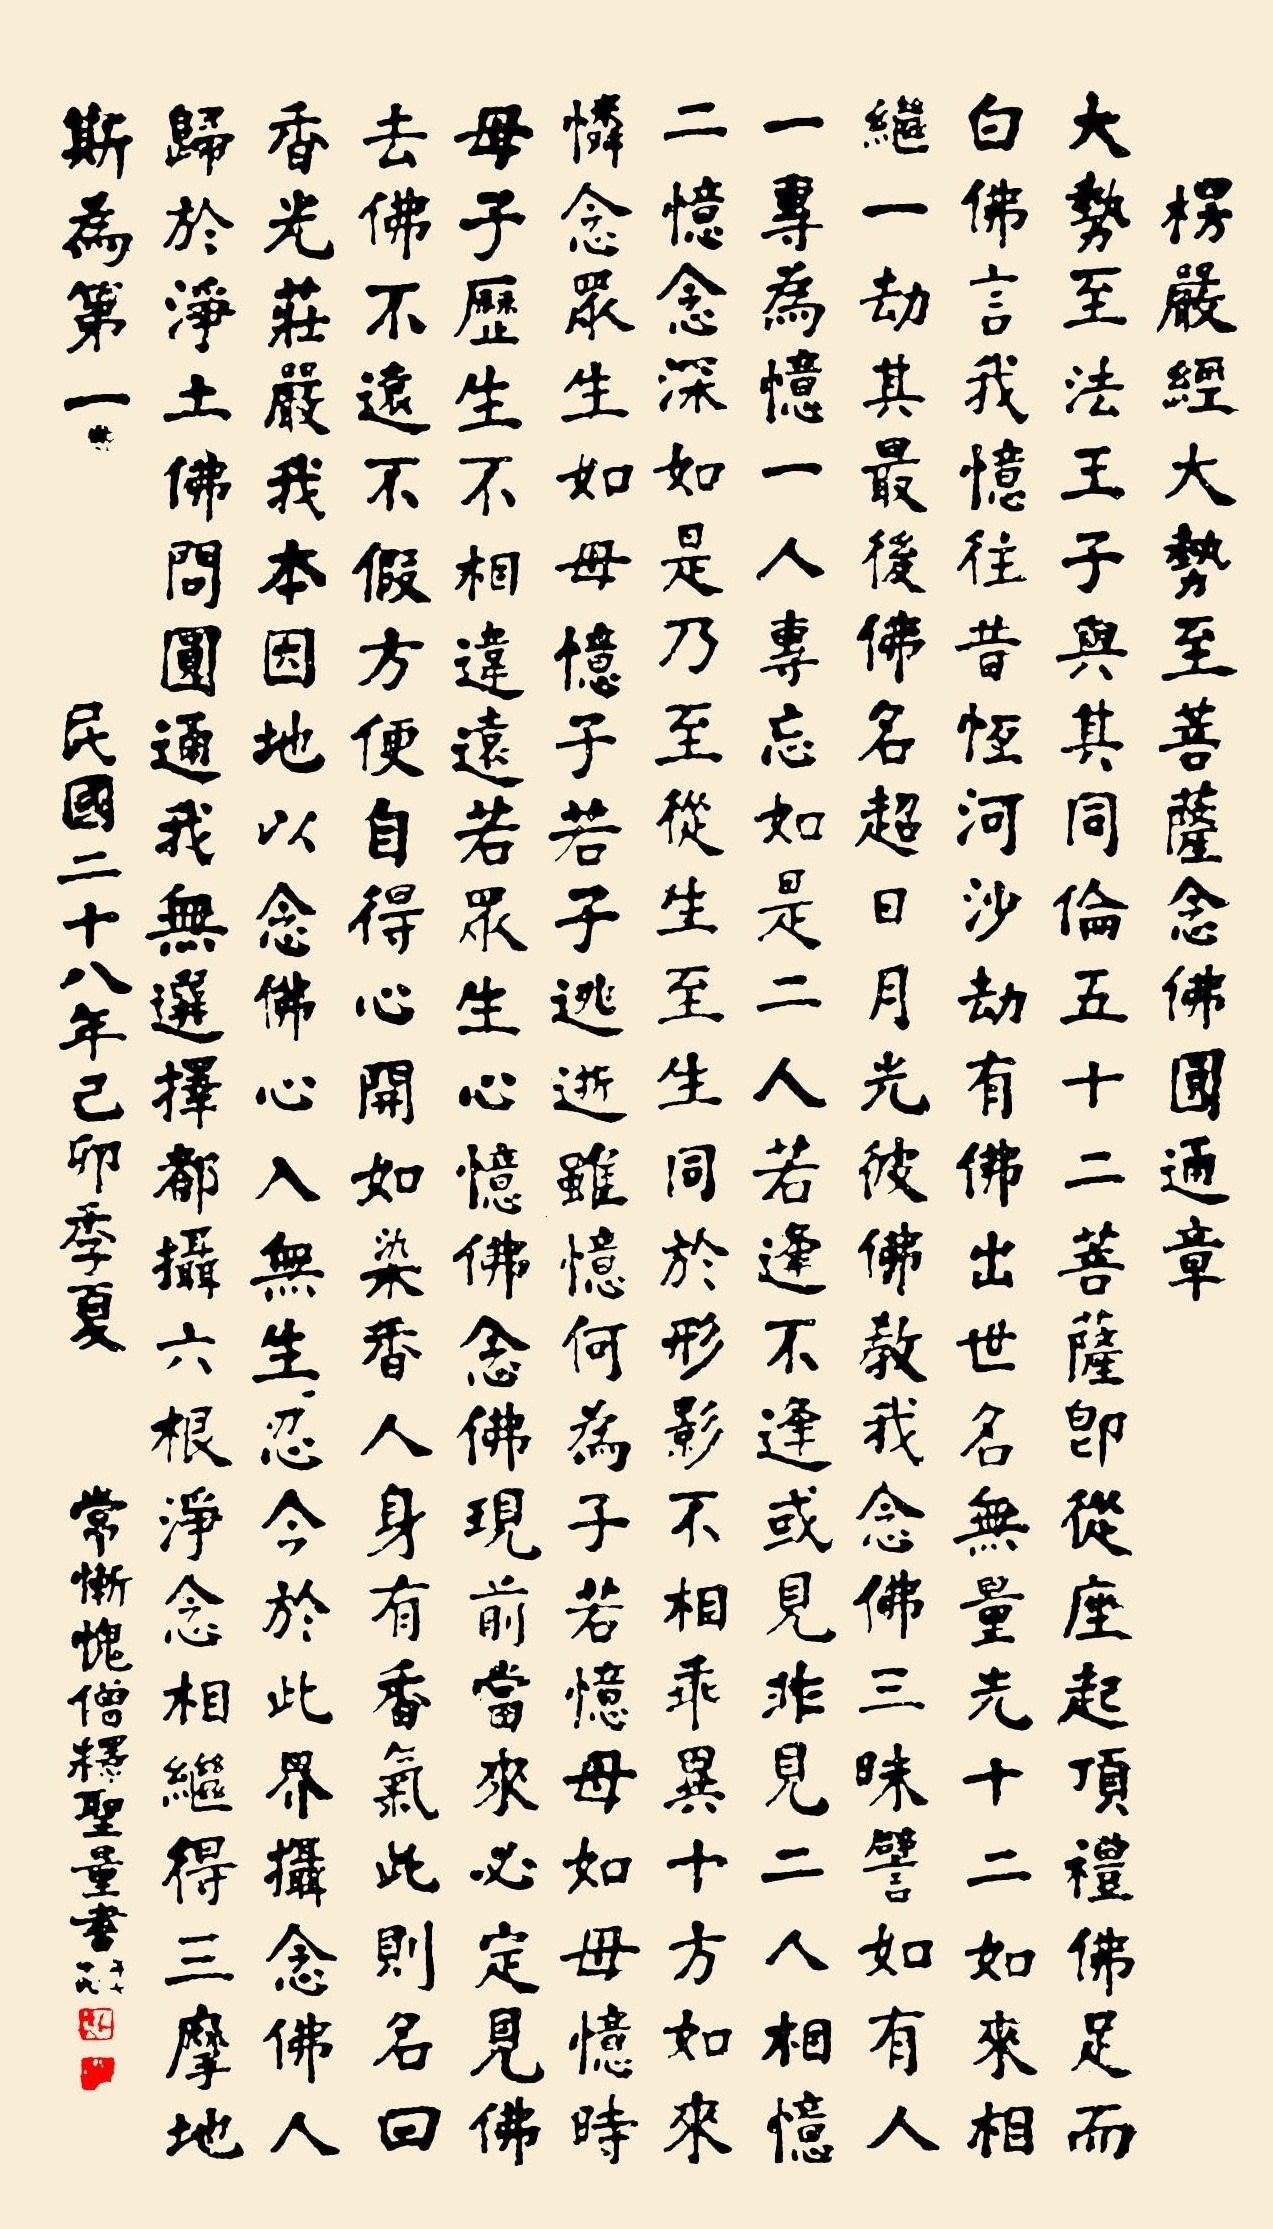 楞嚴經大勢至菩薩念佛圓通章
大勢至法王子與其同倫五十二菩薩即從座起頂禮佛足而
白佛言我憶往昔恆河沙劫有佛出世名無量光十二如來相
繼一劫其最後佛名超日月光彼佛教我念佛三昧譬如有人
一專為憶一人專忘如是二人若逢不逢或見非見二人相憶
二憶念深如是乃至從生至生同於形影不相乖異十方如來
憐念眾生如母憶子若子逃逝雖憶何為子若憶母如母憶時
母子歷生不相違遠若眾生心憶佛念佛現前當來必定見佛
去佛不遠不假方便自得心開如染香人身有香氣此則名曰
香光莊嚴我本因地以念佛心入無生忍今於此界攝念佛人
歸於淨土佛問圓通我無選擇都攝六根淨念相繼得三摩地
斯為第一
民國二十八年己卯季夏
常慚愧僧釋聖量書